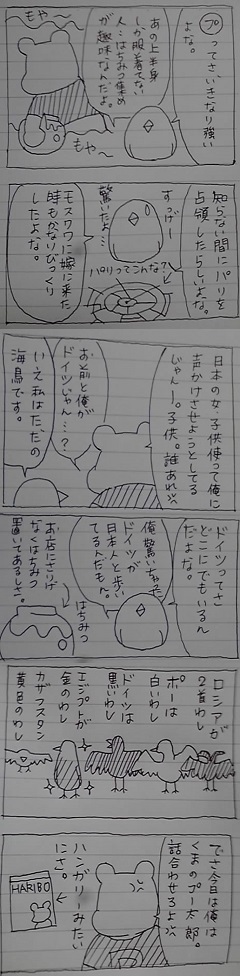 プってさ、いきなり強い
よな。
あの上半身
しか服着てない
人…はちみつ集め
が趣味なんだよ。
もや〜
もや〜
知らない間にパリを
占領したらしいよな。
すっげー
驚いたよ…
パリってこんな？
モスクワに嫁に来た
時もかなりびっくり
したよな。
日本の女、子供使って俺に
声かけさせようとしてる
じゃんー。子供。誰あれ
お前と俺が
ドイツじゃん…？
いえ私はただの
海鳥です。
ドイツってさ
どこにでもいるん
だよな。
俺、驚いちゃった
ドイツが
日本人と歩い
てるんだもん。
はちみつ
お店にさりげ
なくはちみつ
置いてあるしさ。
ロシアが
2首わし
ポーは
白いわし
ドイツは
黒いわし
エジプトが
金のわし
カザフスタン
黄色のわし
でさ今日は俺は
くまのプー太郎。
話合わせろよ
ハンガリーみたい
にさ。
HARIBO